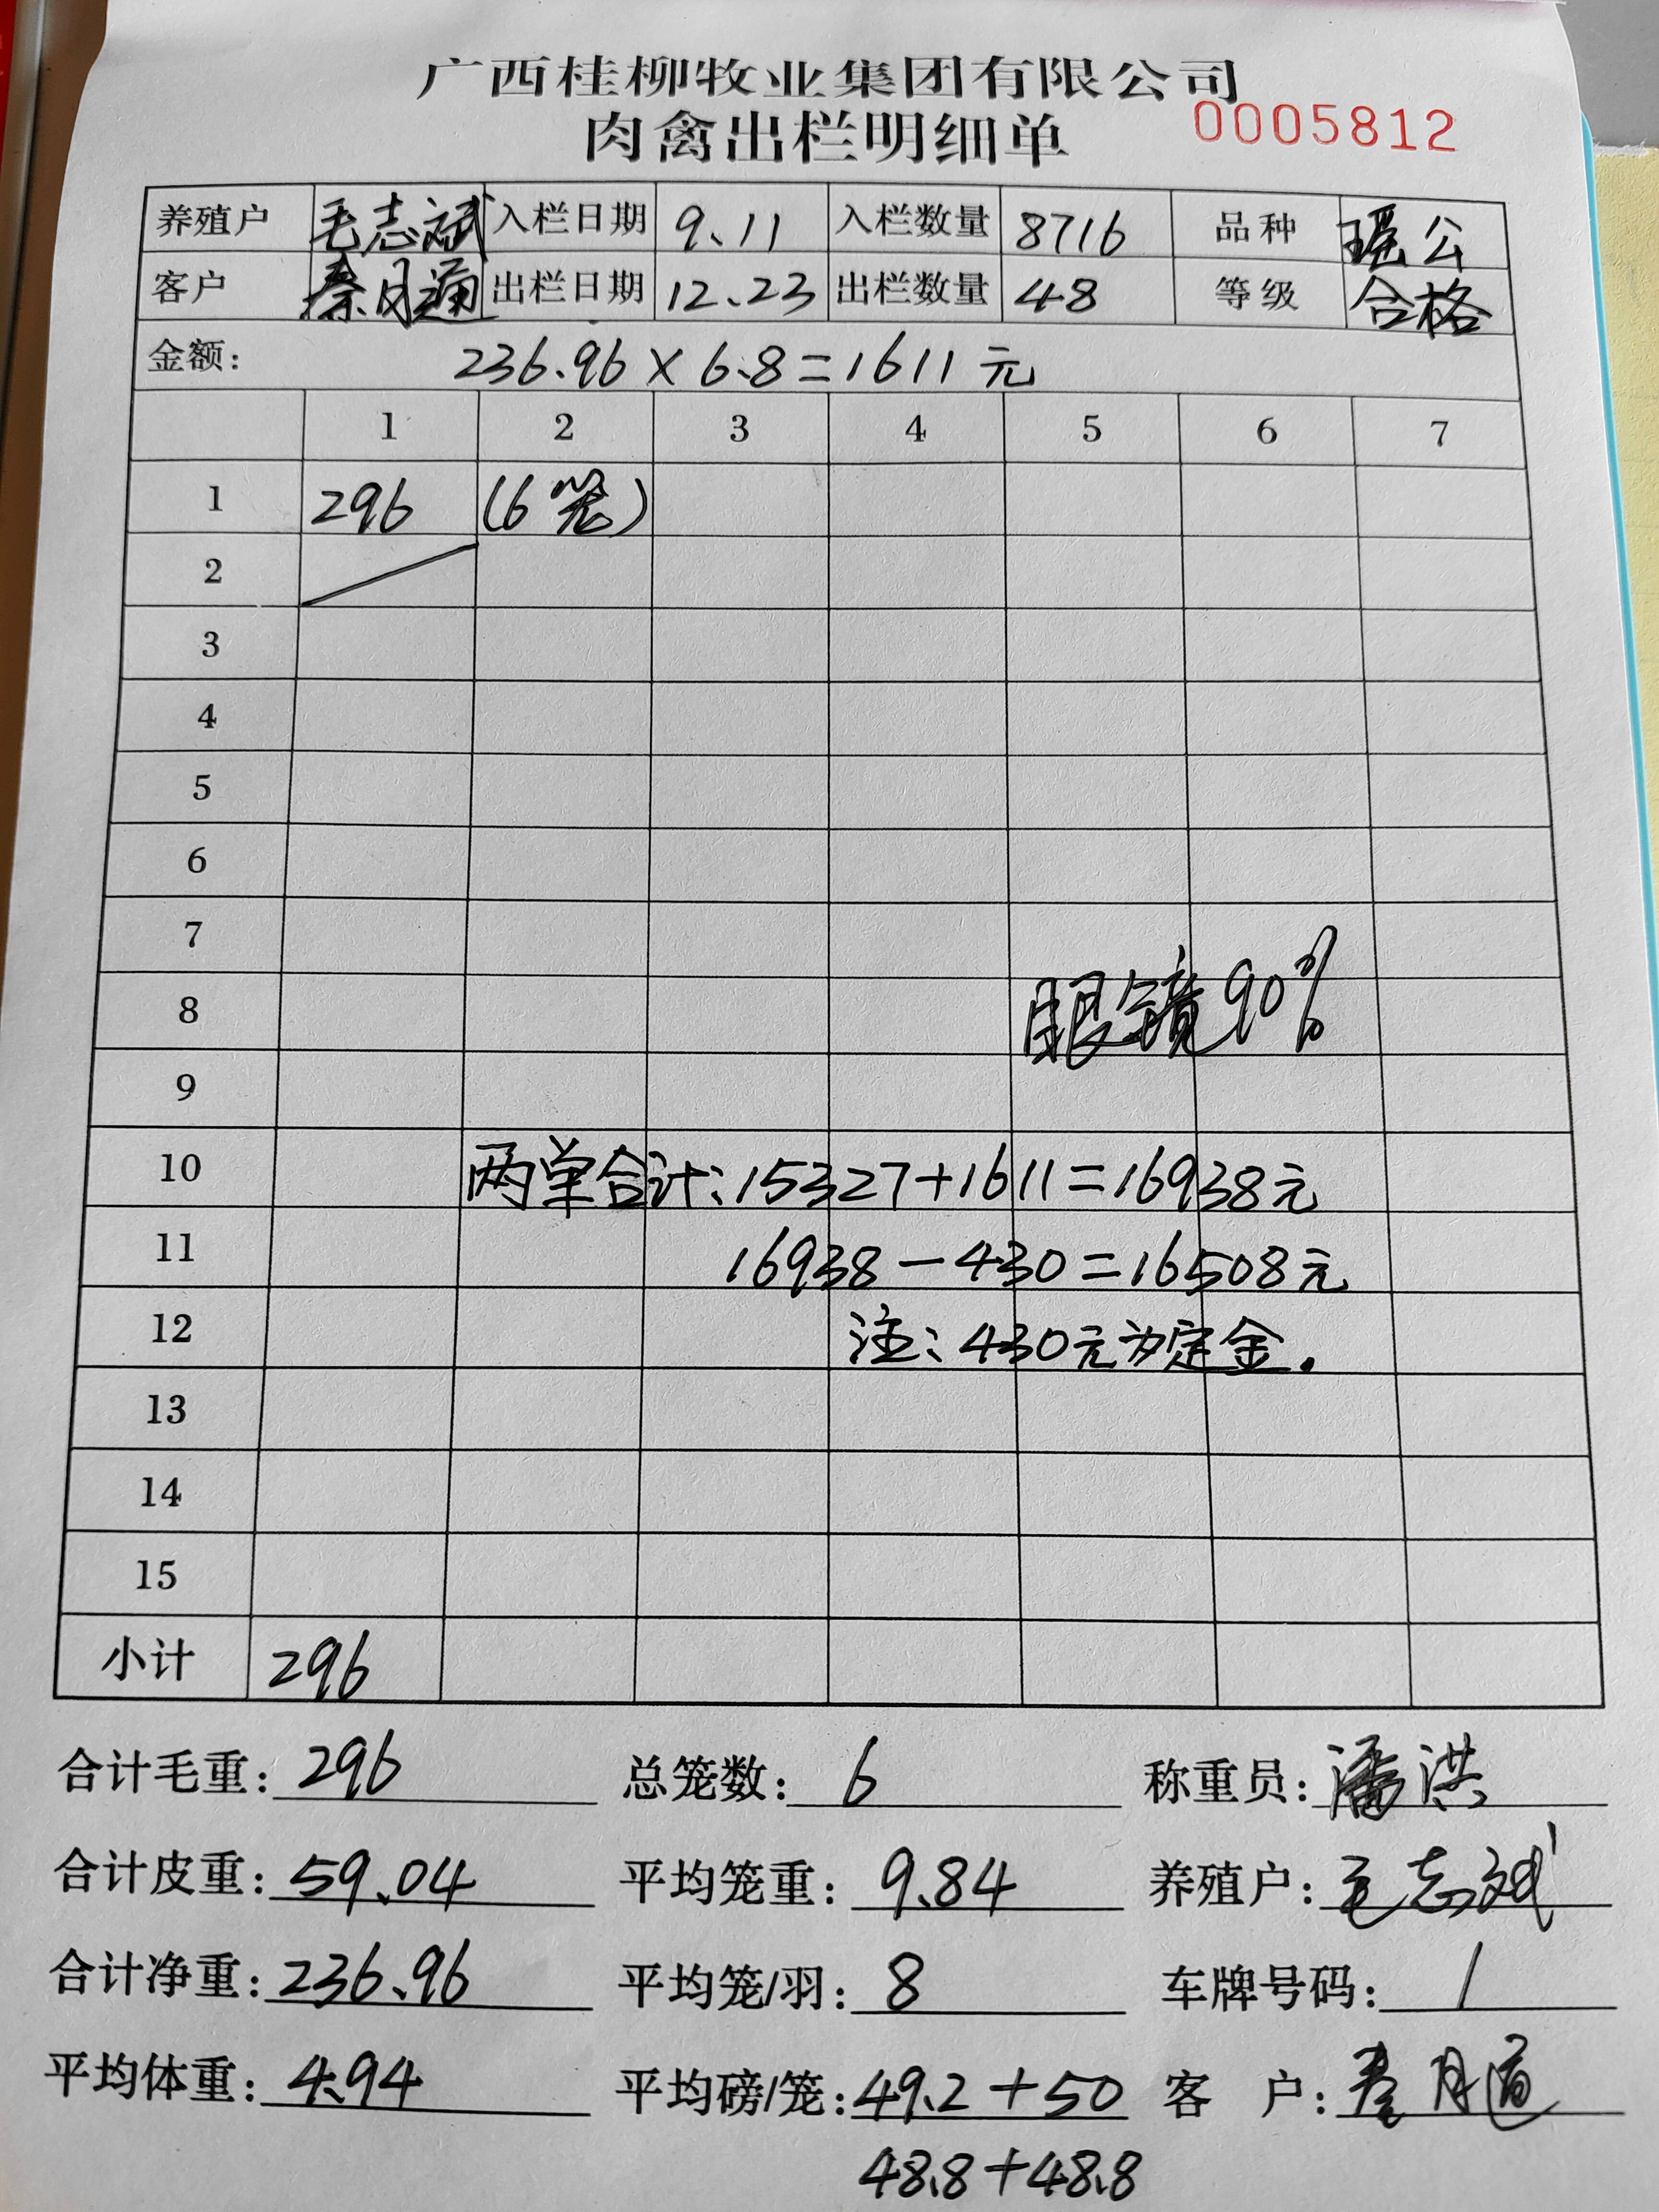 广西桂柳牧业集团有限公司
肉禽出栏明细单 0005812
养殖户 毛志斌 入栏日期 9.11 入栏数量 8716 品种 瑶公
客户 秦月通 出栏日期 12.23 出栏数量 48 等级 合格
金额: 236.96×6.8=1611元
1 2 3 4 5 6 7
1 296 (6笼)
2
3
4
5
6
7
8 眼镜90%
9
10 两单合计:15327+1611=16938元
11 16938-430=16508元
12 注:430元为定金.
13
14
15
小计 296
合计毛重: 296 总笼数: 6 称重员: 潘洪
合计皮重: 59.04 平均笼重: 9.84 养殖户: 毛志斌
合计净重: 236.96 平均笼/羽: 8 车牌号码: /
平均体重: 4.94 平均磅/笼: 49.2+50 客户: 秦月通
48.8+48.8